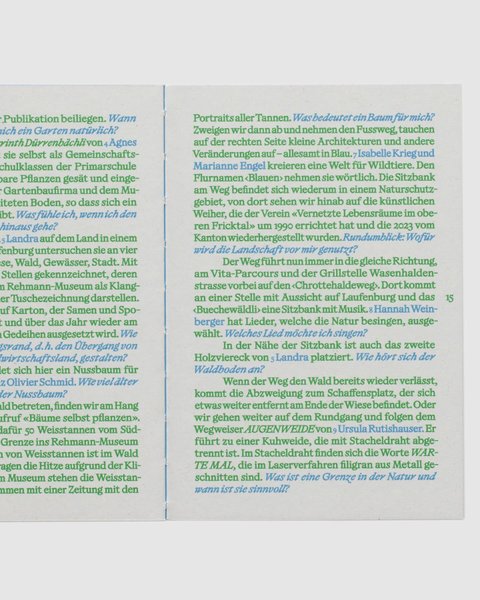 Publikation beiliegen. Wann
ich ein Garten natürlich?
rinth Dürrenbächli von 4 Agnes
sie selbst als Gemeinschafts-
schulklassen der Primarschule
bare Pflanzen gesät und einge-
r Gartenbaufirma und dem Mu-
iteten Boden, so dass sich ein
ibt. Was fühle ich, wenn ich den
hinaus gehe?
5 Landra auf dem Land in einem
ufenburg untersuchen sie an vier
se, Wald, Gewässer, Stadt. Mit
Stellen gekennzeichnet, deren
m Rehmann-Museum als Klang-
er Tuschezeichnung darstellen.
uf Karton, der Samen und Spo-
t und über das Jahr wieder am
Gedeihen ausgesetzt wird. Wie
gsrand, d. h. den Übergang von
wirtschaftsland, gestalten?
det sich hier ein Nussbaum für
z Olivier Schmid. Wie viel älter
der Nussbaum?
ald betreten, finden wir am Hang
ufruf «Bäume selbst pflanzen».
dafür 50 Weisstannen vom Süd-
Grenze ins Rehmann-Museum
n von Weisstannen ist im Wald
ragen die Hitze aufgrund der Kli-
m Museum stehen die Weisstan-
mmen mit einer Zeitung mit den
Portraits aller Tannen. Was bedeutet ein Baum für mich?
Zweigen wir dann ab und nehmen den Fussweg, tauchen
auf der rechten Seite kleine Architekturen und andere
Veränderungen auf – allesamt in Blau. 7 Isabelle Krieg und
Marianne Engel kreieren eine Welt für Wildtiere. Den
Flurnamen ‹Blauen› nehmen sie wörtlich. Die Sitzbank
am Weg befindet sich wiederum in einem Naturschutz-
gebiet, von dort sehen wir hinab auf die künstlichen
Weiher, die der Verein «Vernetzte Lebensräume im obe-
ren Fricktal» um 1990 errichtet hat und die 2023 vom
Kanton wiederhergestellt wurden. Rundumblick: Wofür
wird die Landschaft vor mir genutzt?
Der Weg führt nun immer in die gleiche Richtung,
am Vita-Parcours und der Grillstelle Wasenhalden-
strasse vorbei auf den ‹Chrottehaldeweg›. Dort kommt
an einer Stelle mit Aussicht auf Laufenburg und das
‹Buechewäldli› eine Sitzbank mit Musik. 8 Hannah Wein-
berger hat Lieder, welche die Natur besingen, ausge-
wählt. Welches Lied möchte ich singen?
In der Nähe der Sitzbank ist auch das zweite
Holzviereck von 5 Landra platziert. Wie hört sich der
Waldboden an?
Wenn der Weg den Wald bereits wieder verlässt,
kommt die Abzweigung zum Schaffensplatz, der sich
etwas weiter entfernt am Ende der Wiese befindet. Oder
wir gehen weiter auf dem Rundgang und folgen dem
Wegweiser AUGENWEIDE von 9 Ursula Rutishauser. Er
führt zu einer Kuhweide, die mit Stacheldraht abge-
trennt ist. Im Stacheldraht finden sich die Worte WAR-
TE MAL, die im Laserverfahren filigran aus Metall ge-
schnitten sind. Was ist eine Grenze in der Natur und
wann ist sie sinnvoll?
15